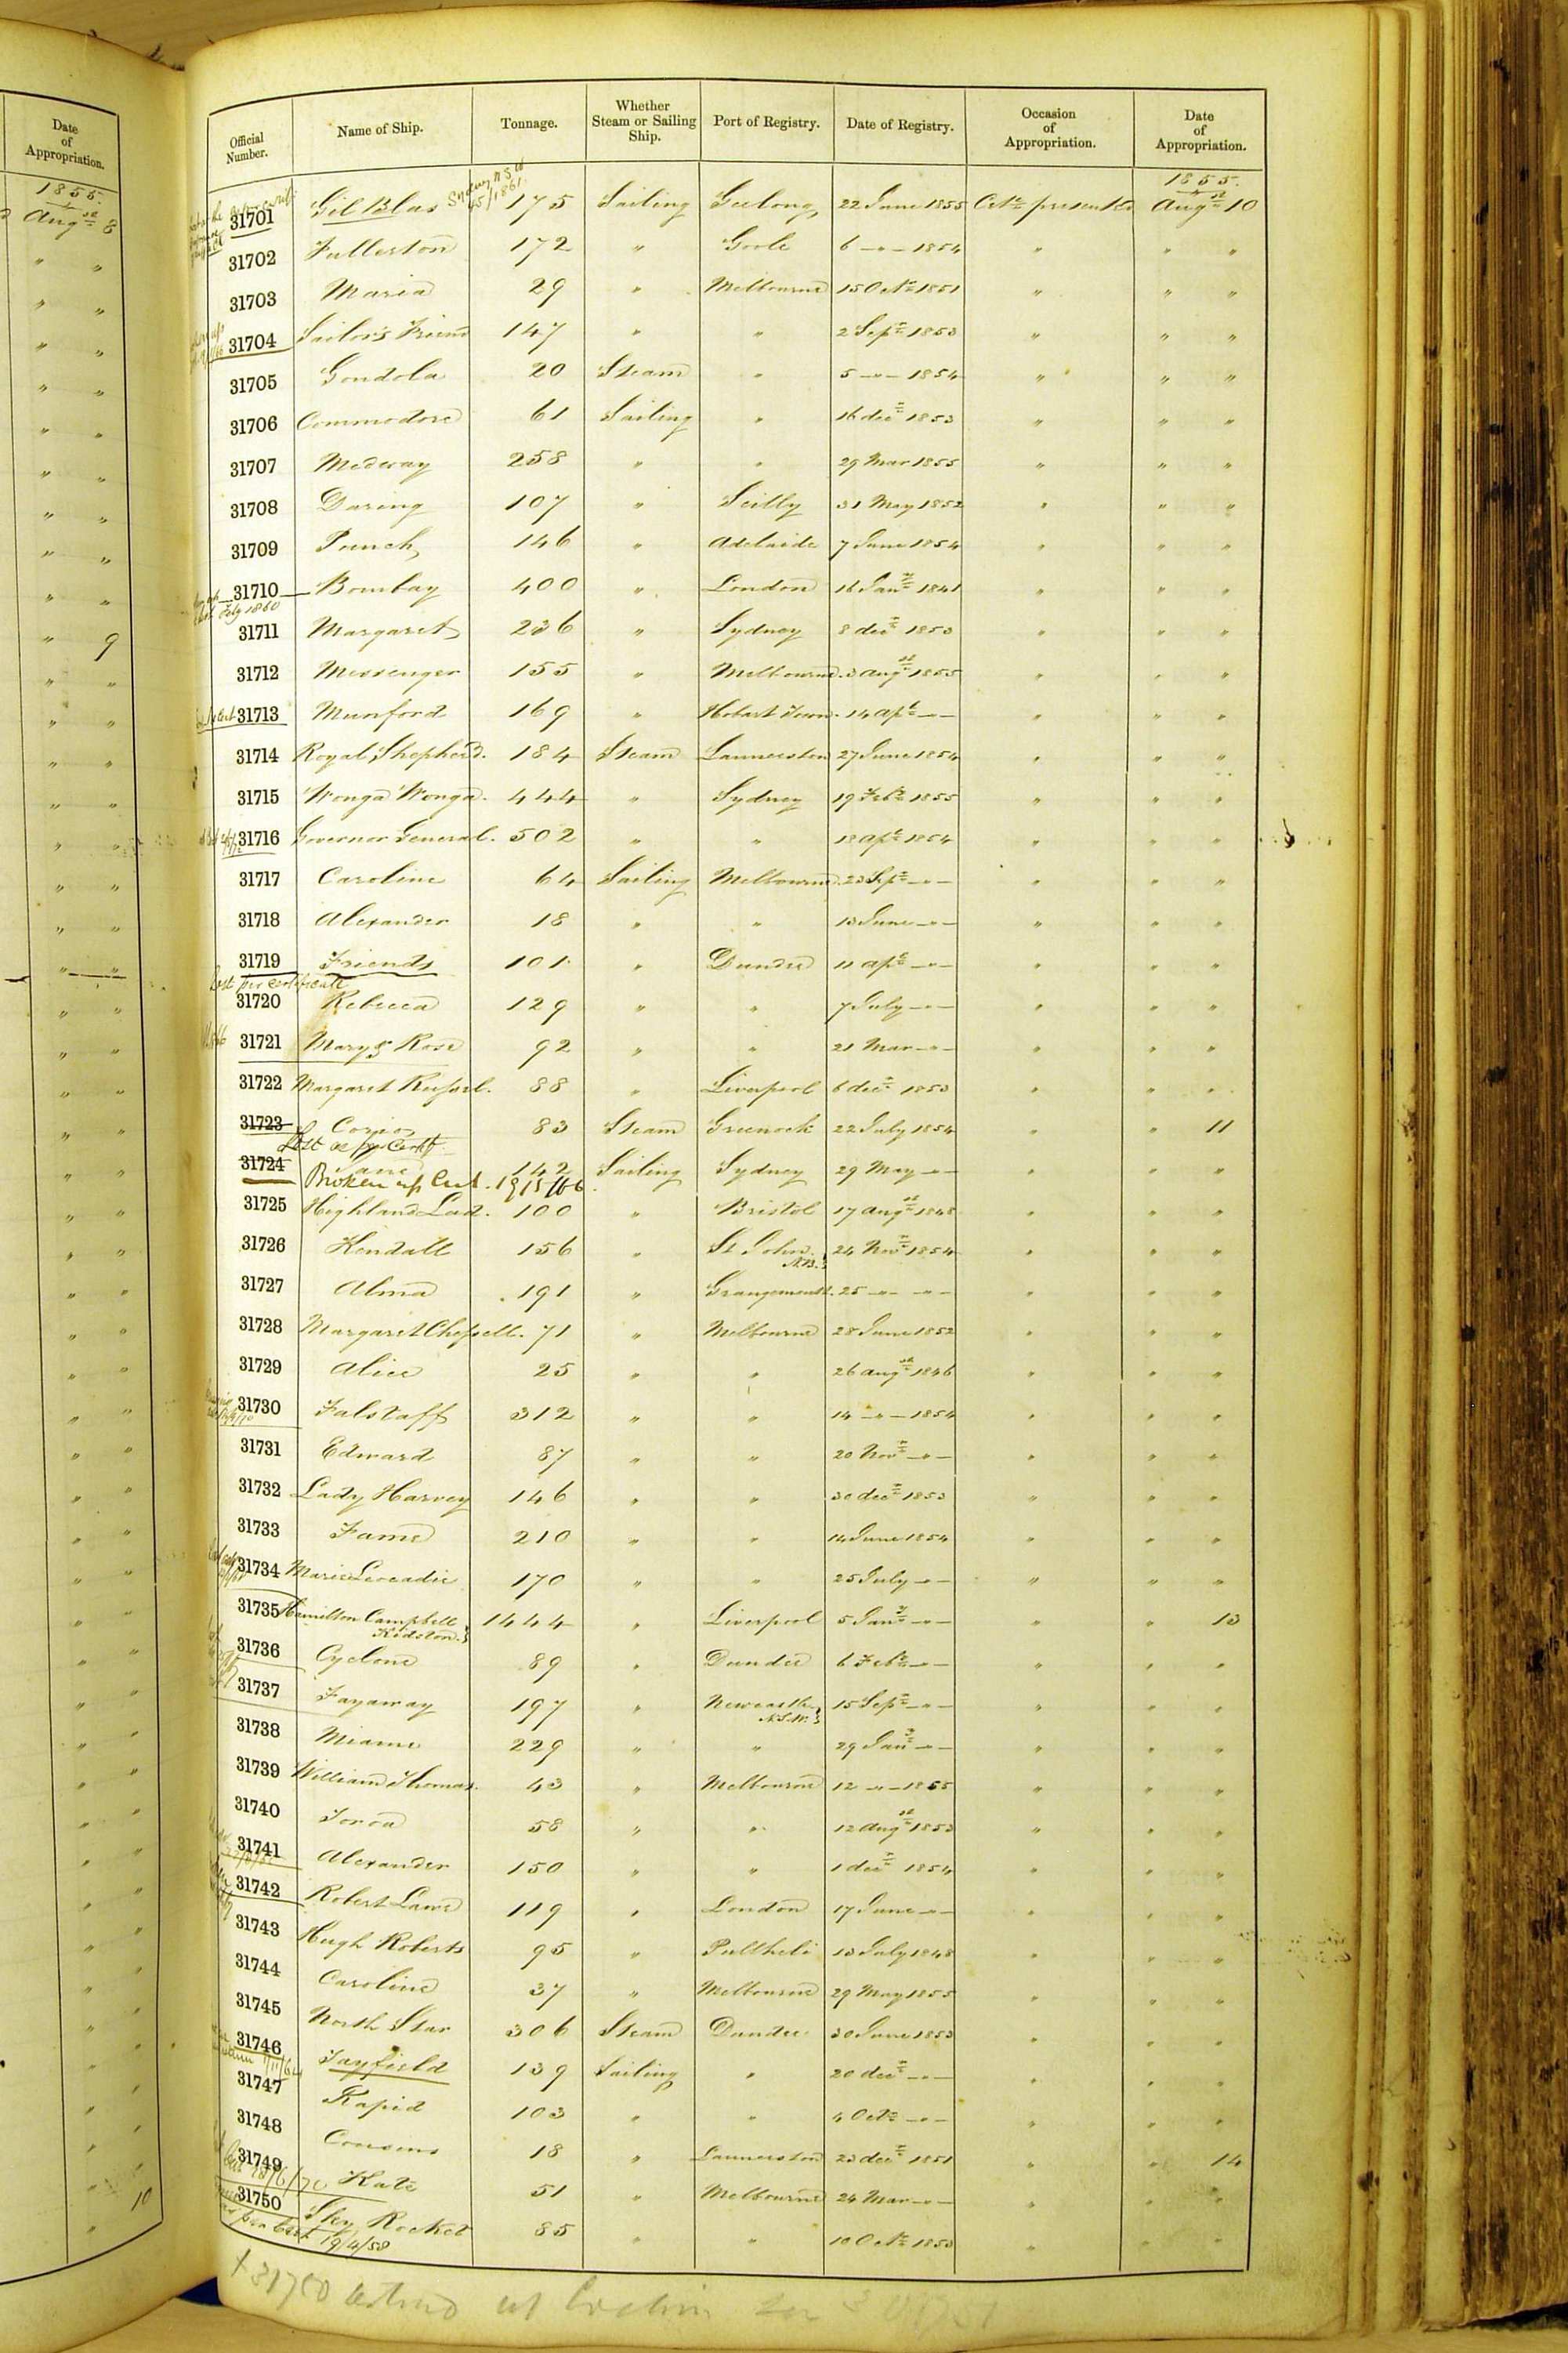 Date of Appropriation.
1855.
Augst 8
" "
9
10
Official Number. Name of Ship. Tonnage. Whether Steam or Sailing Ship. Port of Registry. Date of Registry. Occasion of Appropriation. Date of Appropriation.
1855.
Sydney NSW 45/1861.
31701 Gil Blas 175 Sailing Geelong 22 June 1855 Certe presented Augst 10
31702 Fullerton 172 " Goole 6 -"- 1854 " " "
31703 Maria 29 " Melbourne 15 Octr 1851 " " "
31704 Sailor's Friend 147 " " 2 Sepr 1853 " " "
31705 Gondola 20 Steam " 5 -"- 1854 " " "
31706 Commodore 61 Sailing " 16 decr 1853 " " "
31707 Medway 258 " " 29 Mar 1855 " " "
31708 Daring 107 " Scilly 31 May 1852 " " "
31709 Punch 146 " Adelaide 7 June 1854 " " "
31710 Bombay 400 " London 16 Jany 1841 " " "
July 1860
31711 Margaret 236 " Sydney 8 decr 1853 " " "
31712 Messenger 155 " Melbourne. 3 augst 1855 " " "
31713 Munford 169 " Hobart Town. 14 apl -"- " " "
31714 Royal Shepherd. 184 Steam Launceston 27 June 1854 " " "
31715 Wonga Wonga. 444 " Sydney 19 Feby 1855 " " "
31716 Governor General. 502 " " 18 apl 1854 " " "
31717 Caroline 64 Sailing Melbourne. 23 Sepr -"- " " "
31718 Alexander 18 " " 13 June -"- " " "
31719 Friends 101 " Dundee 11 apl -"- " " "
Lost per certificate
31720 Rebecca 129 " " 7 July -"- " " "
31721 Mary & Rose 92 " " 21 Mar -"- " " "
31722 Margaret Russel. 88 " Liverpool 6 decr 1853 " " "
31723 Corio 83 Steam Greenock 22 July 1854 " " 11
Lost as pr Certf.
31724 142 Sailing Sydney 29 May -"- " " "
Broken up Cert.
31725 Highland Lad. 100 " Bristol 17 augst 1848 " " "
31726 Kendall 156 " St John. N.B. 24 Novr 1854 " " "
31727 Alma 191 " Grangemouth. 25 -"- -"- " " "
31728 Margaret Chessell. 71 " Melbourne 28 June 1852 " " "
31729 Alice 25 " " 26 augst 1846 " " "
31730 Falstaff 312 " " 14 -"- 1854 " " "
31731 Edward 87 " " 20 Novr -"- " " "
31732 Lady Harvey 146 " " 30 decr 1853 " " "
31733 Fame 210 " " 14 June 1854 " " "
31734 Marie Leocadie 170 " " 25 July -"- " " "
31735 Hamilton Campbell Kidston. 1444 " Liverpool 5 Jany -"- " " 13
31736 Cyclone 89 " Dundee 6 Feby -"- " " "
31737 Fayaway 197 " Newcastle N.S.W. 15 Sepr -"- " " "
31738 229 " " 29 Jany -"- " " "
31739 William Thomas. 43 " Melbourne 12 -"- 1855 " " "
31740 58 " " 12 augst 1853 " " "
31741 Alexander 150 " " 1 decr 1854 " " "
31742 Robert Lawe 119 " London 17 June -"- " " "
31743 Hugh Roberts 95 " Pullheli 13 July 1848 " " "
31744 Caroline 37 " Melbourne 29 May 1855 " " "
31745 North Star 306 Steam Dundee 30 June 1853 " " "
31746 Tayfield 139 Sailing " 20 decr -"- " " "
31747 Rapid 103 " " 4 Octr -"- " " "
31748 Cousins 18 " Launceston 23 decr 1851 " " 14
31749 Kate 51 " Melbourne 24 Mar -"- " " "
31750 Sky Rocket 85 " " 10 Octr 1853 " " "
per Cert 19/4/58
+ 31750